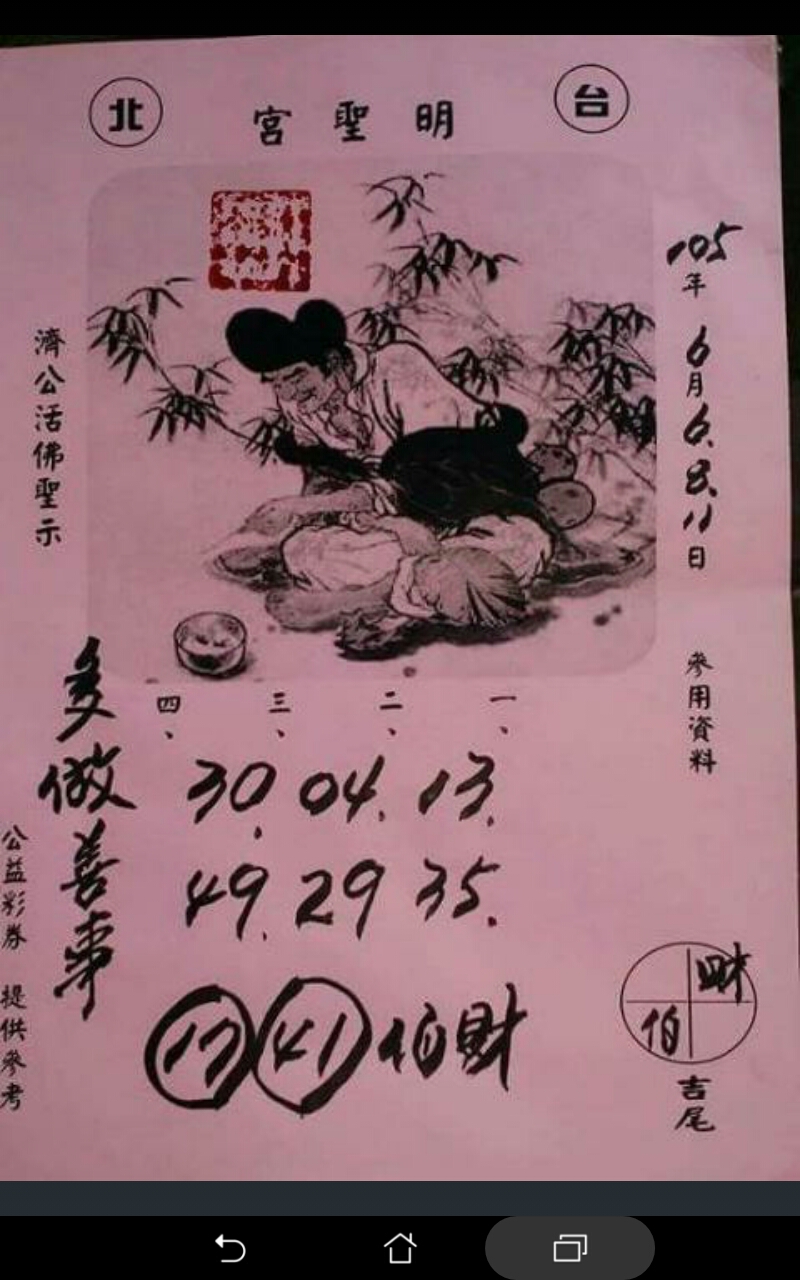 台北
明聖宮
105年6月6.8.11日
參用資料
一、二、三、四、
13. 04. 30.
35. 29 49.
財伯 41 17
財
伯
吉尾
濟公活佛聖示
多做善事
公益彩券 提供參考